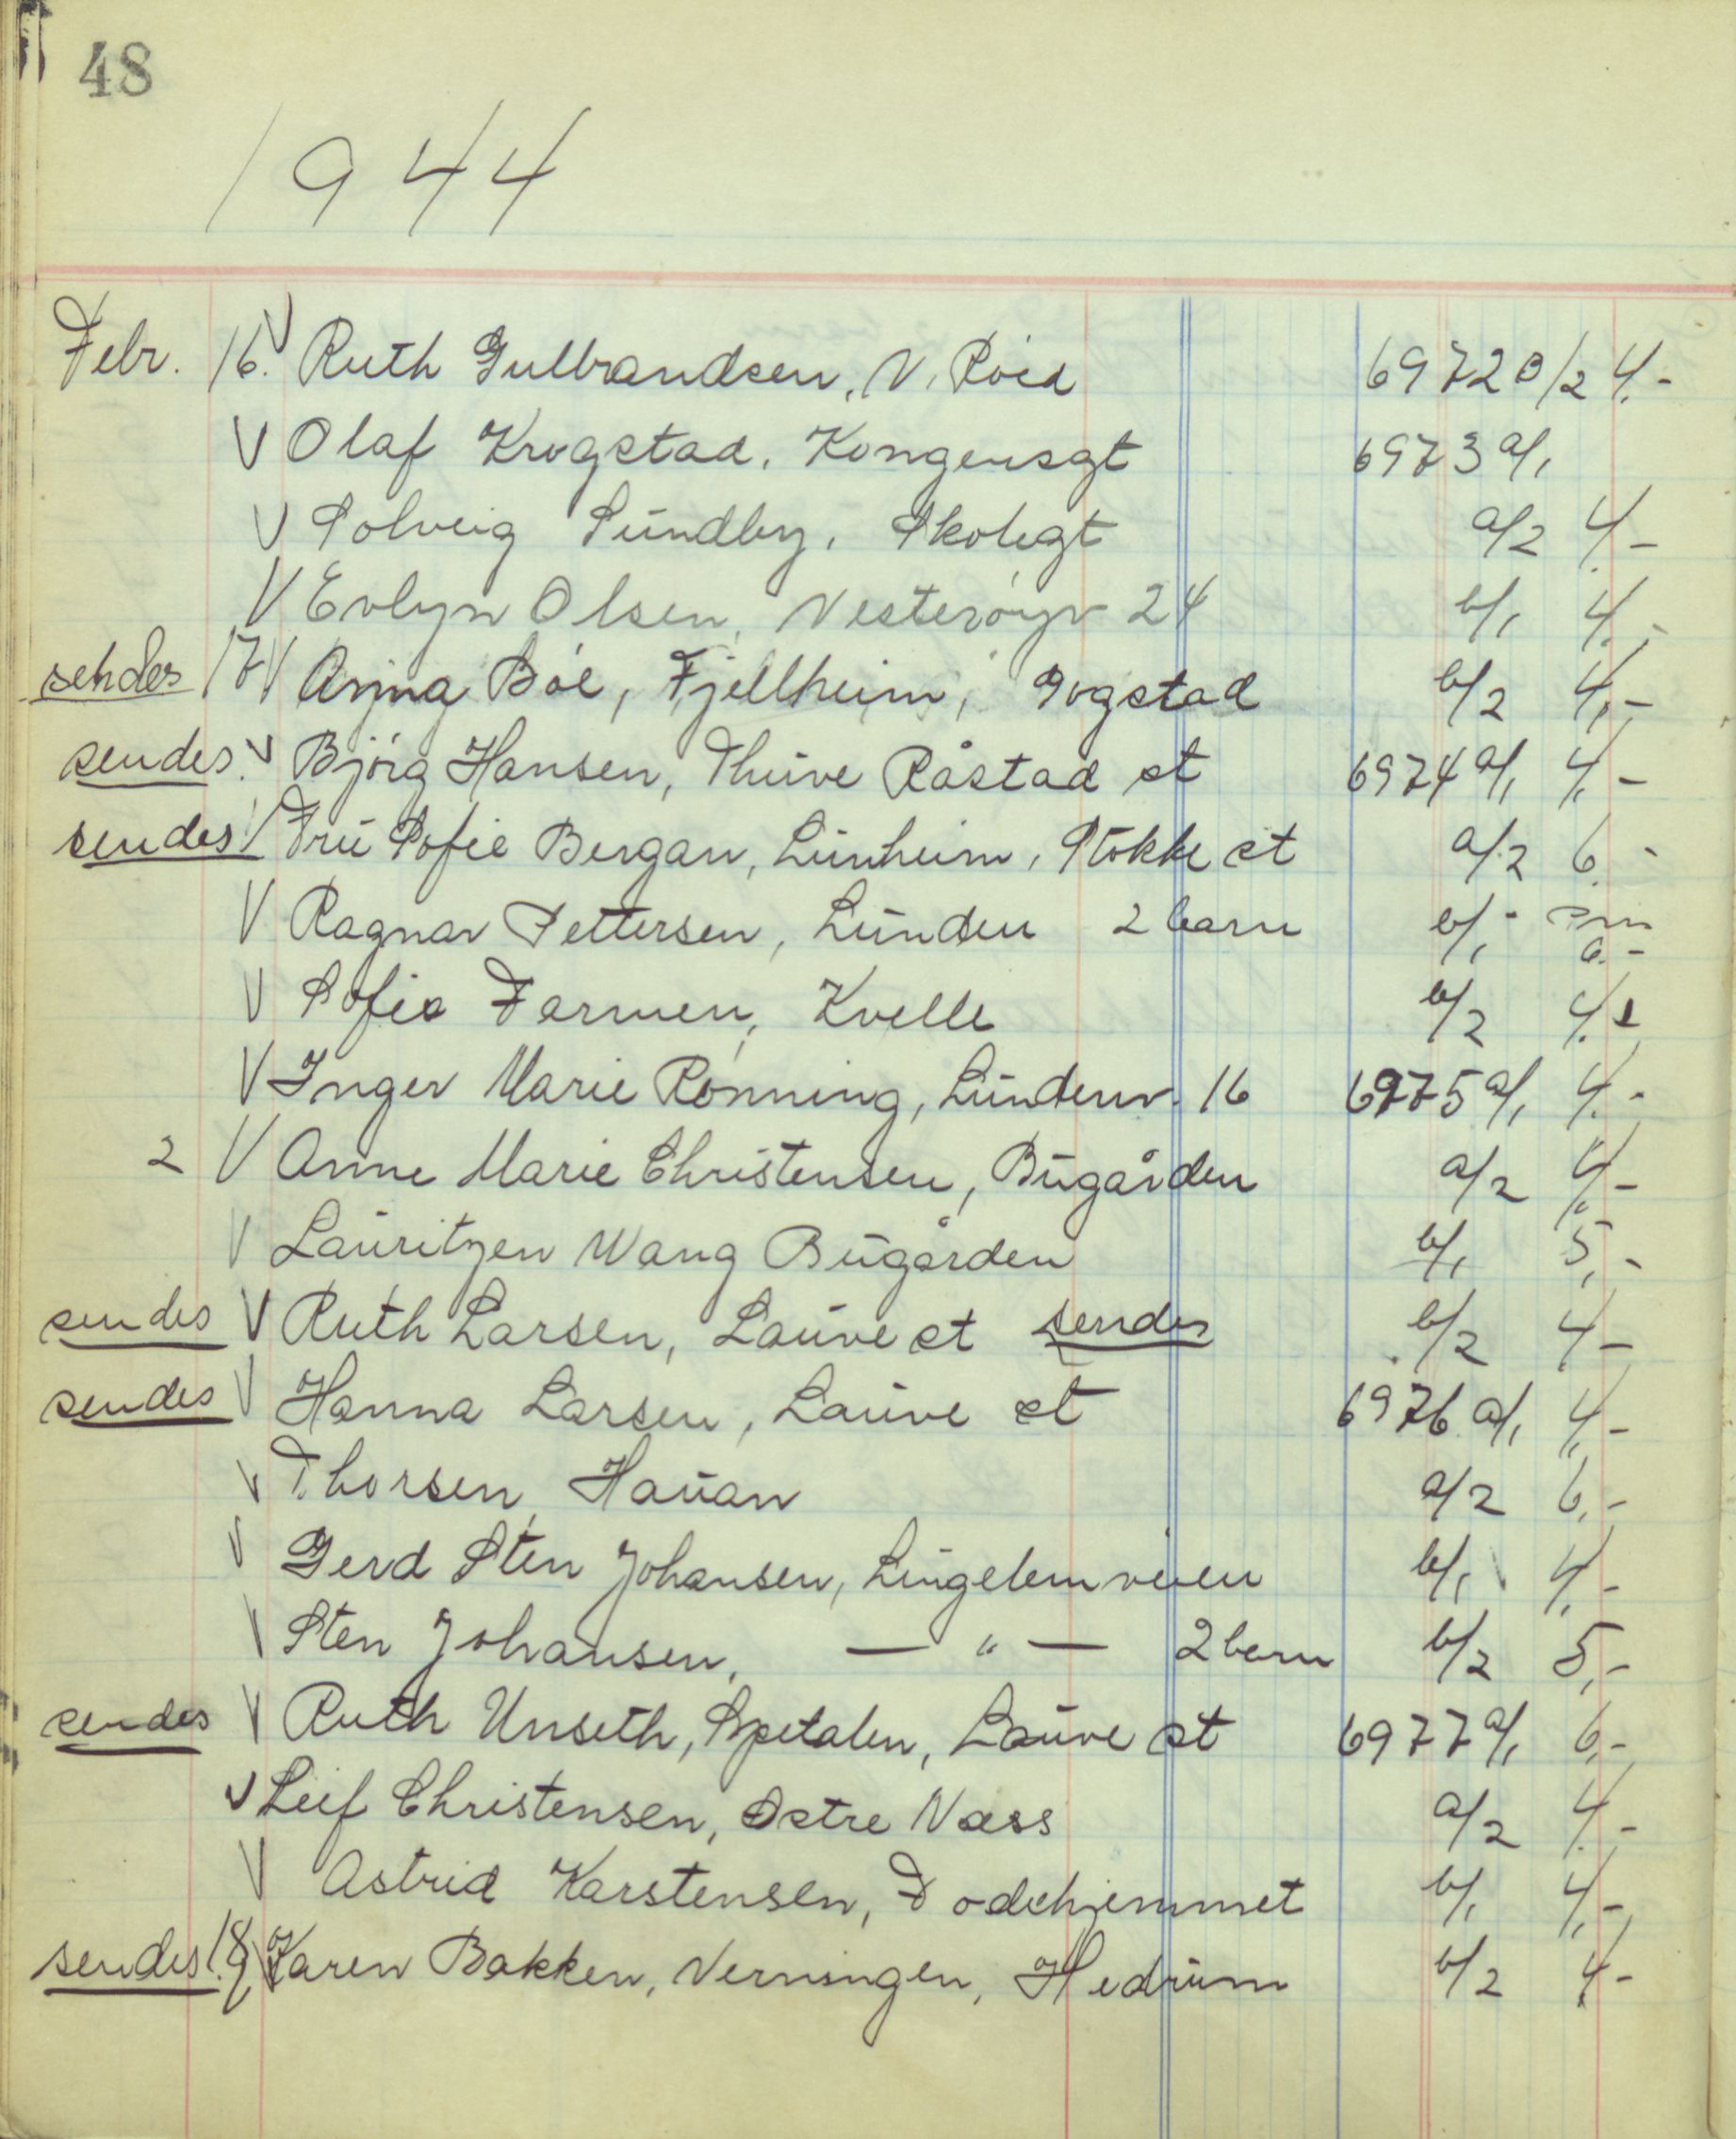 48
1944
Febr. 16. V Ruth Gulbrandsen, N. Röed 6972 b/2 4.-
V Olaf Krogstad, Kongensgt 6973 a/1
V Solveig Sundby, Skolegt a/2 4.-
V Evlyn Olsen, Vesteröyv 24 b/1 4.-
sendes 17 V Anna Böe, Fjellheim, Gogstad b/2 4,-
sendes. V Björg Hansen, Thuve Råstad st 6974 a/1 4,-
sendes V Fru Sofie Bergan, Lunheim, Stokke st a/2 6.-
V Ragnar Pettersen, Lunden 2 barn b/1 - 6.-
V Sofie Farmen, Kvelle b/2 4.-
V Inger Marie Rönning, Lundenv. 16 6975 a/1 4.-
2 V Anne Marie Christensen, Bugården a/2 4,-
V Lauritzen Wang Bugården b/1 5,-
sendes V Ruth Larsen, Lauve st sendes b/2 4-
sendes V Hanna Larsen, Lauve st 6976 a/1 4,-
V Thorsen, Hauan a/2 6,-
V Gerd Sten Johansen, Lingelemveien b/1 4,-
V Sten Johansen, — " — 2 barn b/2 5,-
sendes V Ruth Unseth, Spetalen, Lauve st 6977 a/1 6,-
V Leif Christensen, Östre Næss a/2 4.-
V Astrid Karstensen, Födehjemmet b/1 4,-
sendes 18 V Karen Bakken, Verningen, Hedrum b/2 4-